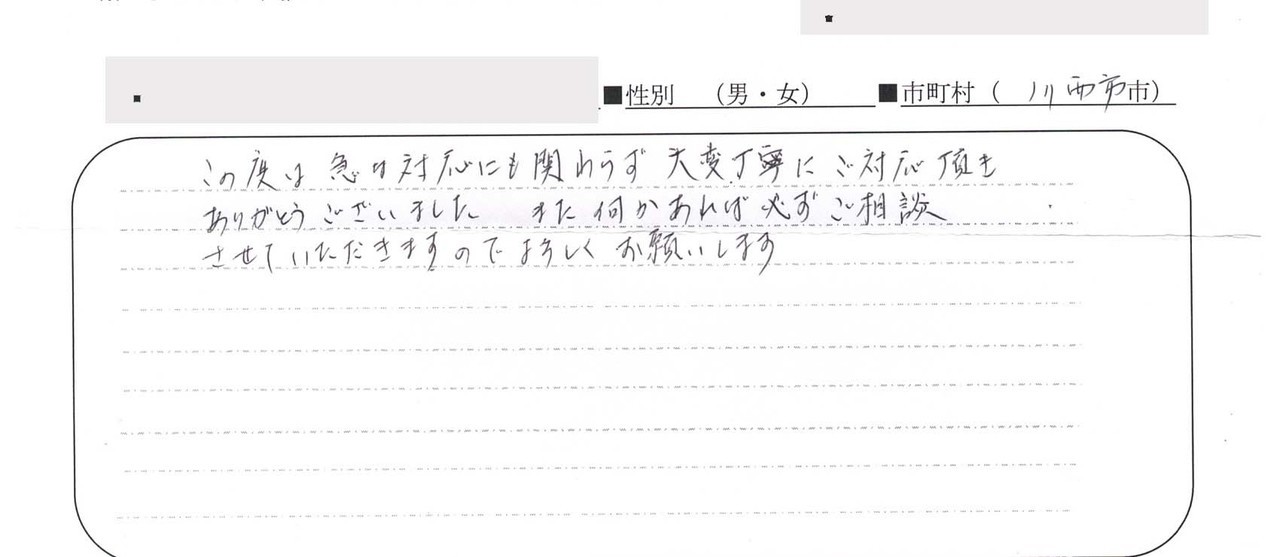 ■性別 （男・女） ■市町村（ 川西市市）
この度は 急な対応にも関わらず 大変丁寧に ご対応頂き
ありがとうございました また何かあれば必ずご相談
させていただきますのでよろしくお願いします